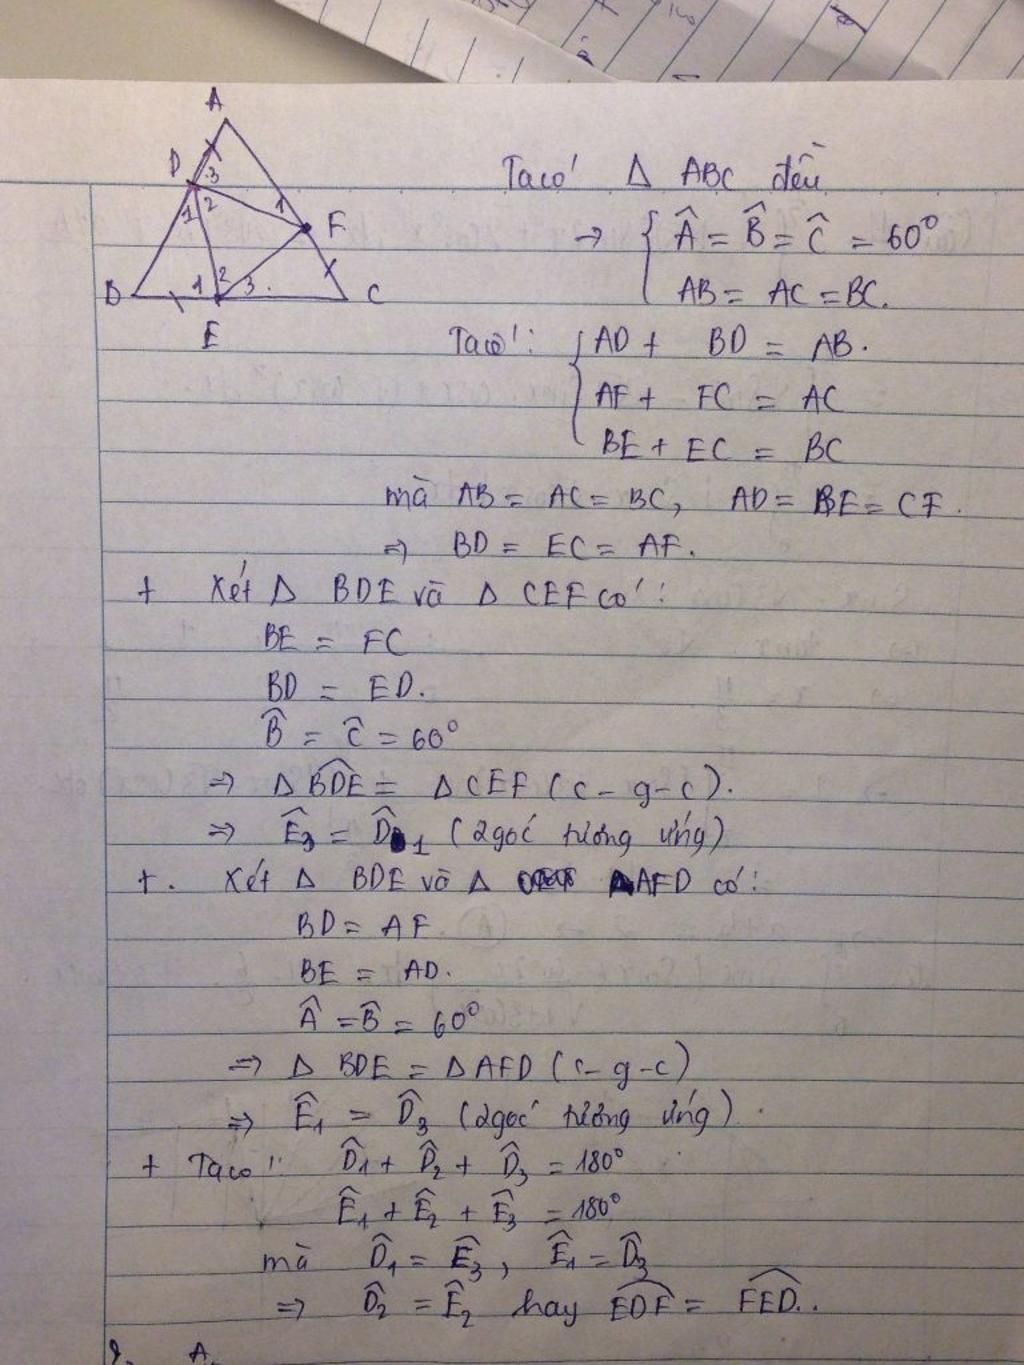 A
D 3
1 2 1 F
B 1 2 3 C
E
Ta có Δ ABC đều
→ { Â = B̂ = Ĉ = 60°
AB = AC = BC.
Ta có: { AD + BD = AB.
AF + FC = AC
BE + EC = BC
mà AB = AC = BC, AD = BE = CF.
=> BD = EC = AF.
+ Xét Δ BDE và Δ CEF có:
BE = FC
BD = ED.
B̂ = Ĉ = 60°
=> Δ BDE = Δ CEF (c-g-c).
=> Ê3 = D̂1 (2 góc tương ứng)
+. Xét Δ BDE và Δ AFD có:
BD = AF.
BE = AD.
Â = B̂ = 60°
=> Δ BDE = Δ AFD (c-g-c)
=> Ê1 = D̂3 (2 góc tương ứng).
+ Ta có: D̂1 + D̂2 + D̂3 = 180°
Ê1 + Ê2 + Ê3 = 180°
mà D̂1 = Ê3, Ê1 = D̂3
=> D̂2 = Ê2 hay EDF = FED..
A